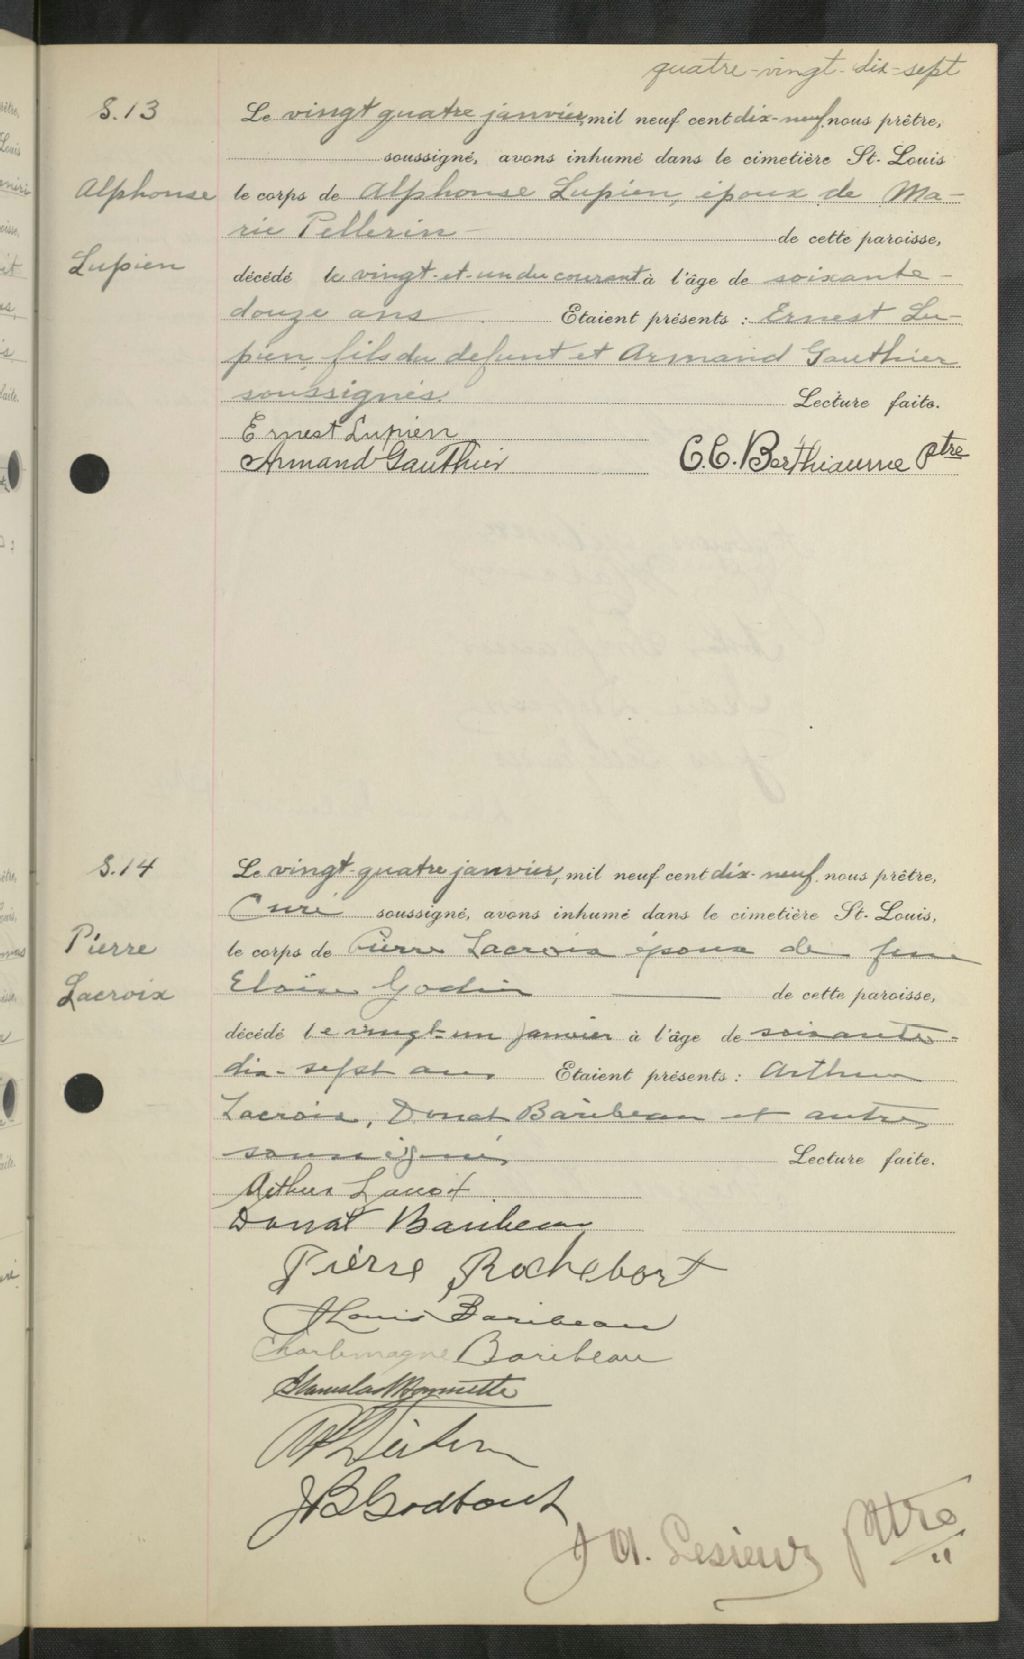 quatre-vingt-dix-sept
S.13
Le vingt quatre janvier, mil neuf cent dix-neuf, nous prêtre,
soussigné, avons inhumé dans le cimetière St-Louis
Alphonse
le corps de Alphonse Lupien, époux de Ma-
rie Pellerin - de cette paroisse,
Lupien
décédé le vingt-et-un du courant à l'âge de soixante-
douze ans Etaient présents : Ernest Lu-
pien, fils du defunt et Armand Gauthier
soussignés. Lecture faite.
Ernest Lupien
Armand Gauthier C.E. Berthiaume Ptre
S.14
Le vingt-quatre janvier, mil neuf cent dix-neuf, nous prêtre,
Curé soussigné, avons inhumé dans le cimetière St-Louis,
Pierre
le corps de Pierre Lacroix époux de feue
Lacroix
Eloïse Godin de cette paroisse,
décédé le vingt-un janvier à l'âge de soixante-
dix-sept ans. Etaient présents : Arthur
Lacroix, Donat Baribeau et autres
soussignés Lecture faite.
Arthur Lacroix
Donat Baribeau
Pierre Rochefort
J Louis Baribeau
Charlemagne Baribeau
Stanislas
JB Godbout
J A. Lesieur ptre